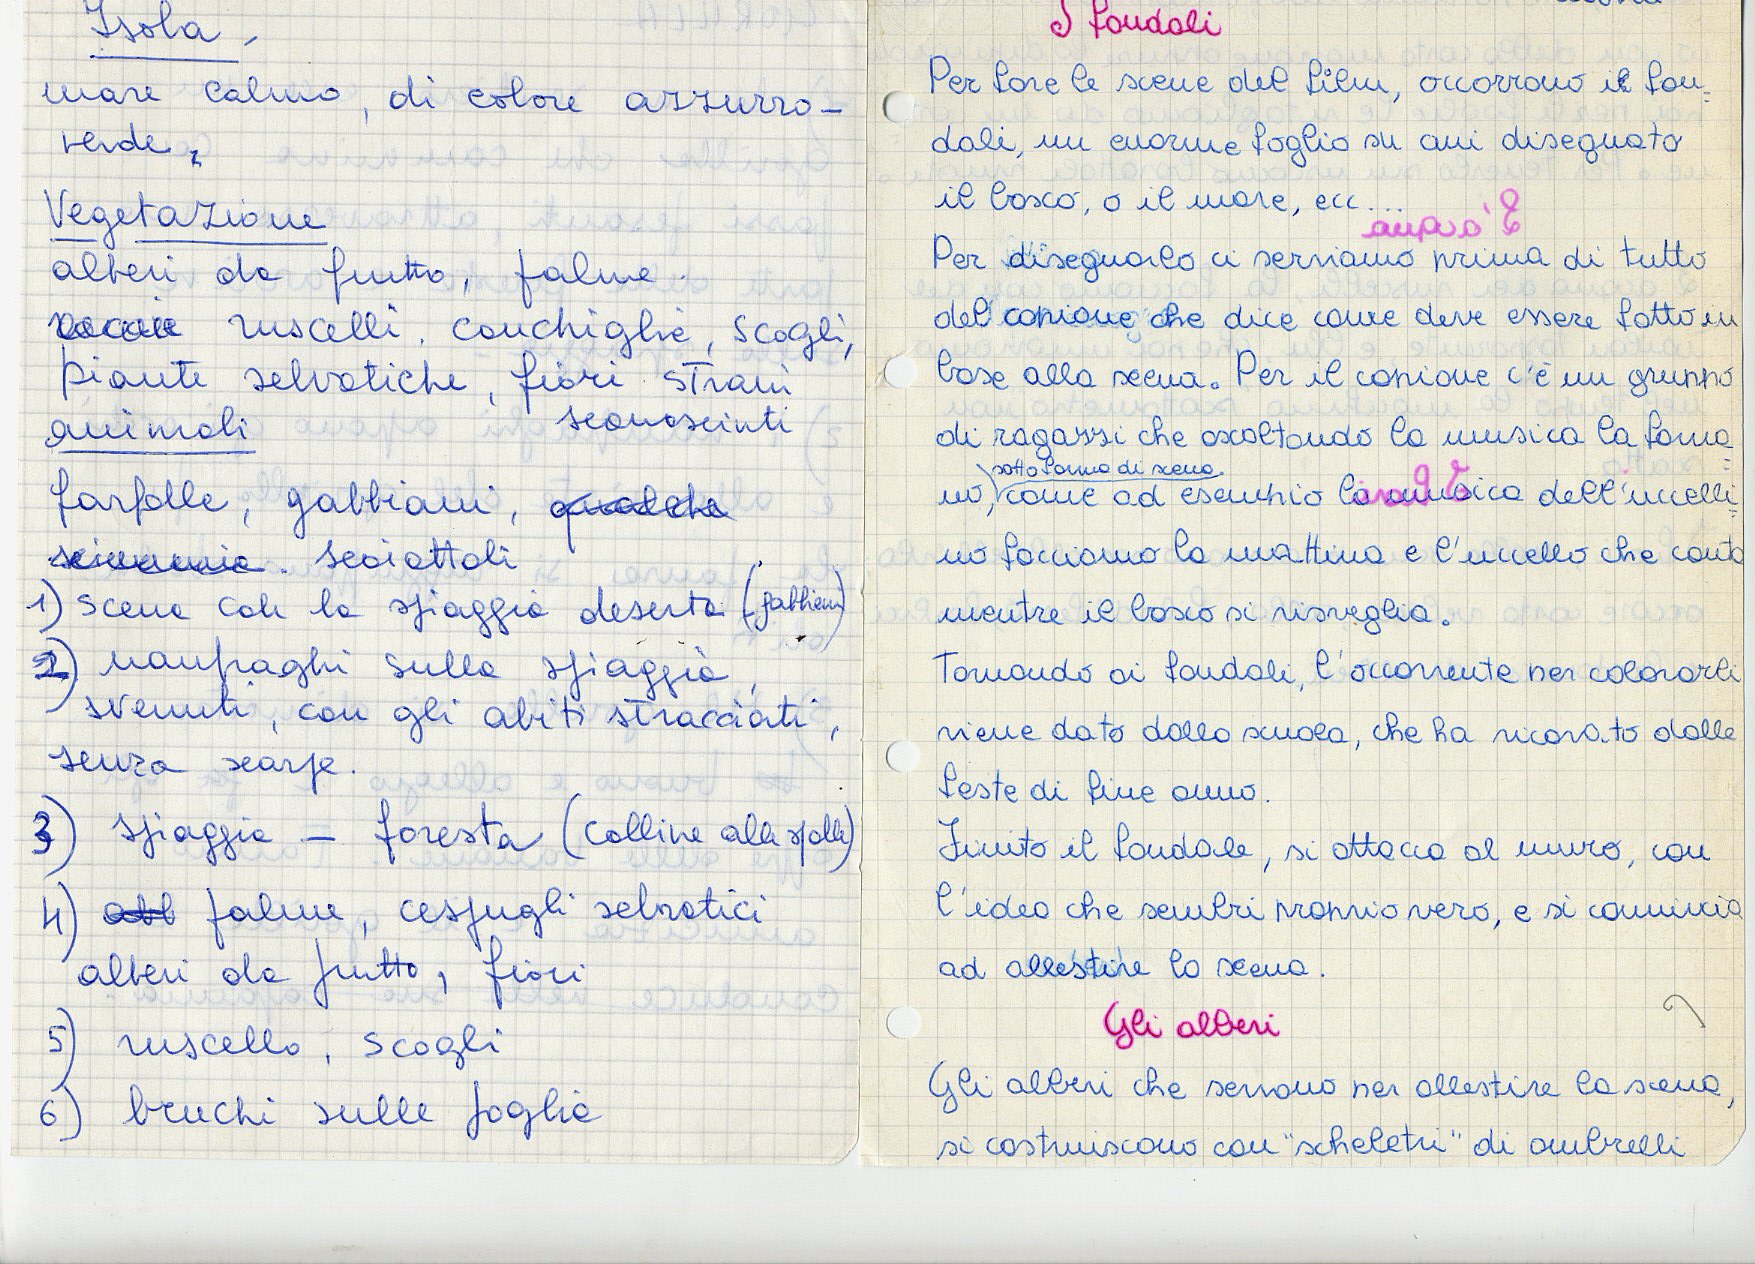 Isola,
mare calmo, di colore azzurro-
verde,
Vegetazione
alberi da frutto, palme.
ruscelli, conchiglie, scogli,
piante selvatiche, fiori strani
sconosciuti
animali
farfalle, gabbiani, qualche
scimmia. scoiattoli
1) scena con la spiaggia deserta (gabbiani)
2) naufraghi sulla spiaggia,
svenuti, con gli abiti stracciati,
senza scarpe.
3) spiaggia – foresta (colline alle spalle)
4) palme, cespugli selvatici
alberi da frutto, fiori
5) ruscello, scogli
6) bruchi sulle foglie
I fondali
Per fare le scene del film, occorrono i fon=
dali, un enorme foglio su cui disegnato
il bosco, o il mare, ecc...
Per disegnarlo ci serviamo prima di tutto
del copione che dice come deve essere fatto in
base alla scena. Per il copione c'è un gruppo
di ragazzi che ascoltando la musica la forma=
sotto forma di scena.
no, come ad esempio la musica dell'uccelli=
no facciamo la mattina e l'uccello che canta
mentre il bosco si risveglia.
Tornando ai fondali, l'occorrente per colorarli
viene dato dalla scuola, che ha ricavato dalle
feste di fine anno.
Finito il fondale, si attacca al muro, con
l'idea che sembri proprio vero, e si comincia
ad allestire la scena.
Gli alberi
Gli alberi che servono per allestire la scena,
si costruiscono con "scheletri" di ombrelli